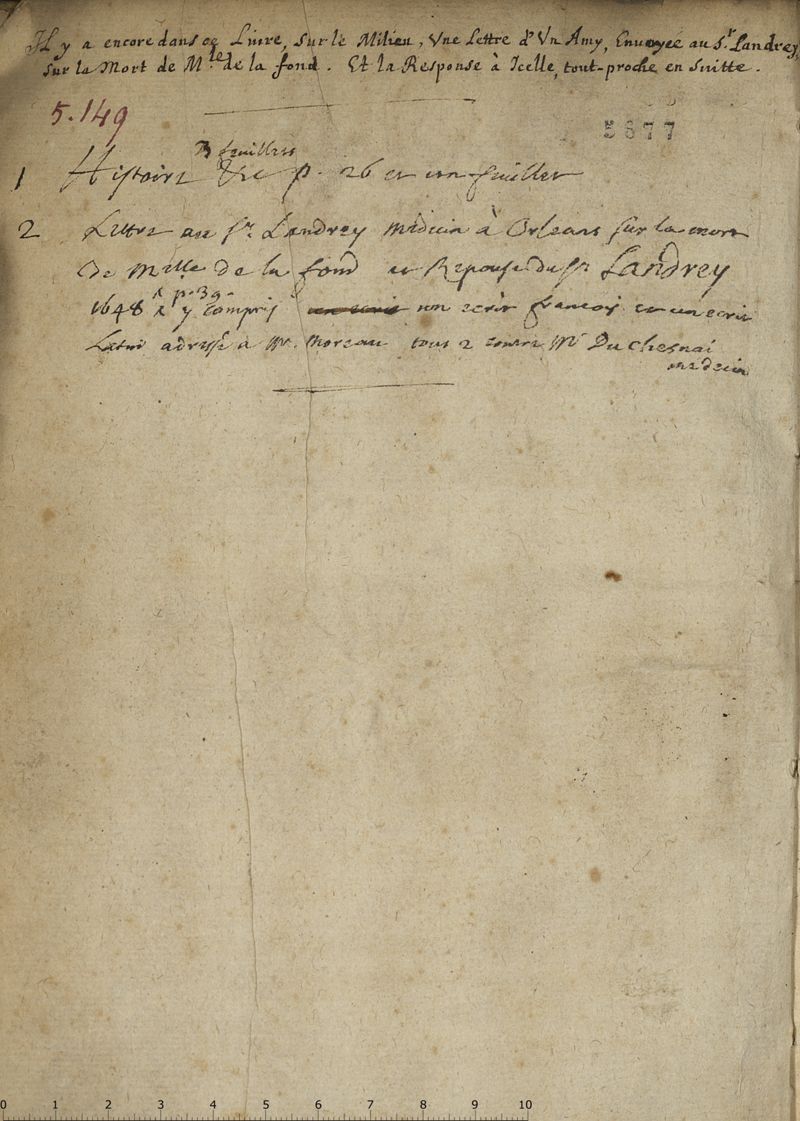 Il y a encore dans ce Livre, Sur le Milieu, Une Lettre d'Un Amy, Envoyée au Sr. Landrey,
Sur la Mort de Mlle de la fond. Et la Response à Icelle, tout-proche en Suitte.
5.149
5677
3 feuillets
1 Histoire &c p. 26 et un feuillet
2 Lettre au Sr. Landrey Médecin à Orleans sur la mort
de Mlle de la fond et Reponse du Sr Landrey
p. 39
1648 y compris un ecrit françois et un ecrit
Latin adressé a Mr. Moreau tous 2 contre Mr Du Chesnai
médecin
0 1 2 3 4 5 6 7 8 9 10